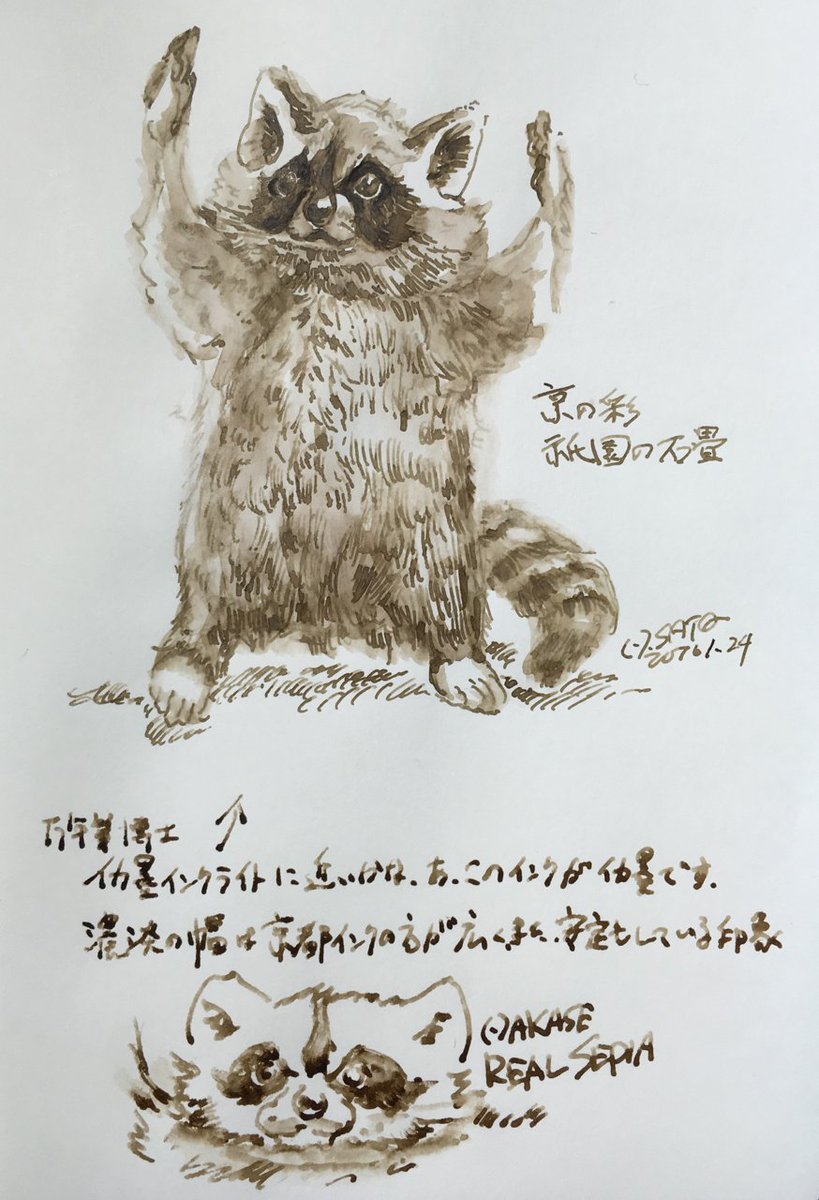 京の彩
祇園の石畳
H.SATO
2026 1-24
万年筆博士
イカ墨インクライトに近いかな、あ、このインクがイカ墨です.
濃淡の幅は京都インクの方が広く、また、安定もしている印象
HAKASE
REAL SEPIA